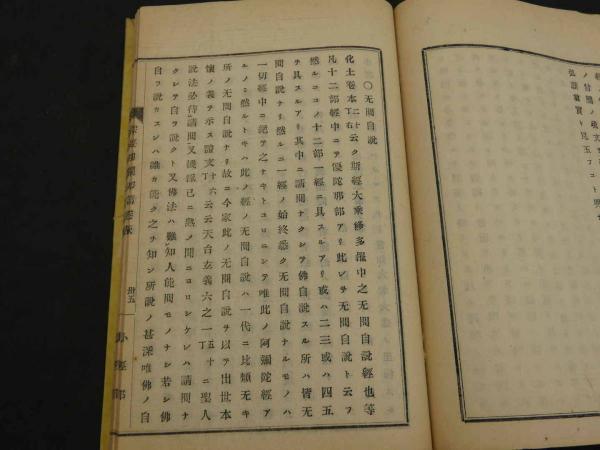 經
ノ付囑ノ疏文
弘誓眞實ト見玉フコ
〇无問自説
化土卷本二十丁右云ク斯經大乘修多羅中之无問自説經也等
凡十二部經中ニヲ優陀那部アリ此レヲ无問自説ト云フ
然ルニコノ十二部一經ニ具スルアリ或ハ二三或ハ四五
ヲ具スルアリ其中ニ請問ナクシヲ佛自説スル所ハ皆无
問自説ナリ然ルニ一經ノ始終悉ク无問自説ナルモノハ
一切經中ニ記ヲ之ナキトコロニシヲ唯此ノ阿彌陀經ア
ルノミ然ルトキハ此ノ經ノ无問自説ハ一代ニ比類无キ
所ノ无問自説ナリ故ニ今家此ノ无問自説ヲ以ヲ出世本
懷ノ義ヲ示ス證文十六丁云云天台玄義六之一五十丁ニ聖人
説法必待請問又機緣已ニ熟ノ聞ニヨロシケレハ請問ナ
クレヲ自ラ説クト又佛法ハ難知人能問モノナシ若シ佛
自ラ説カスンハ誰カ能ク之ヲ知ン所説ノ甚深唯佛ノ自
卅五
小經部